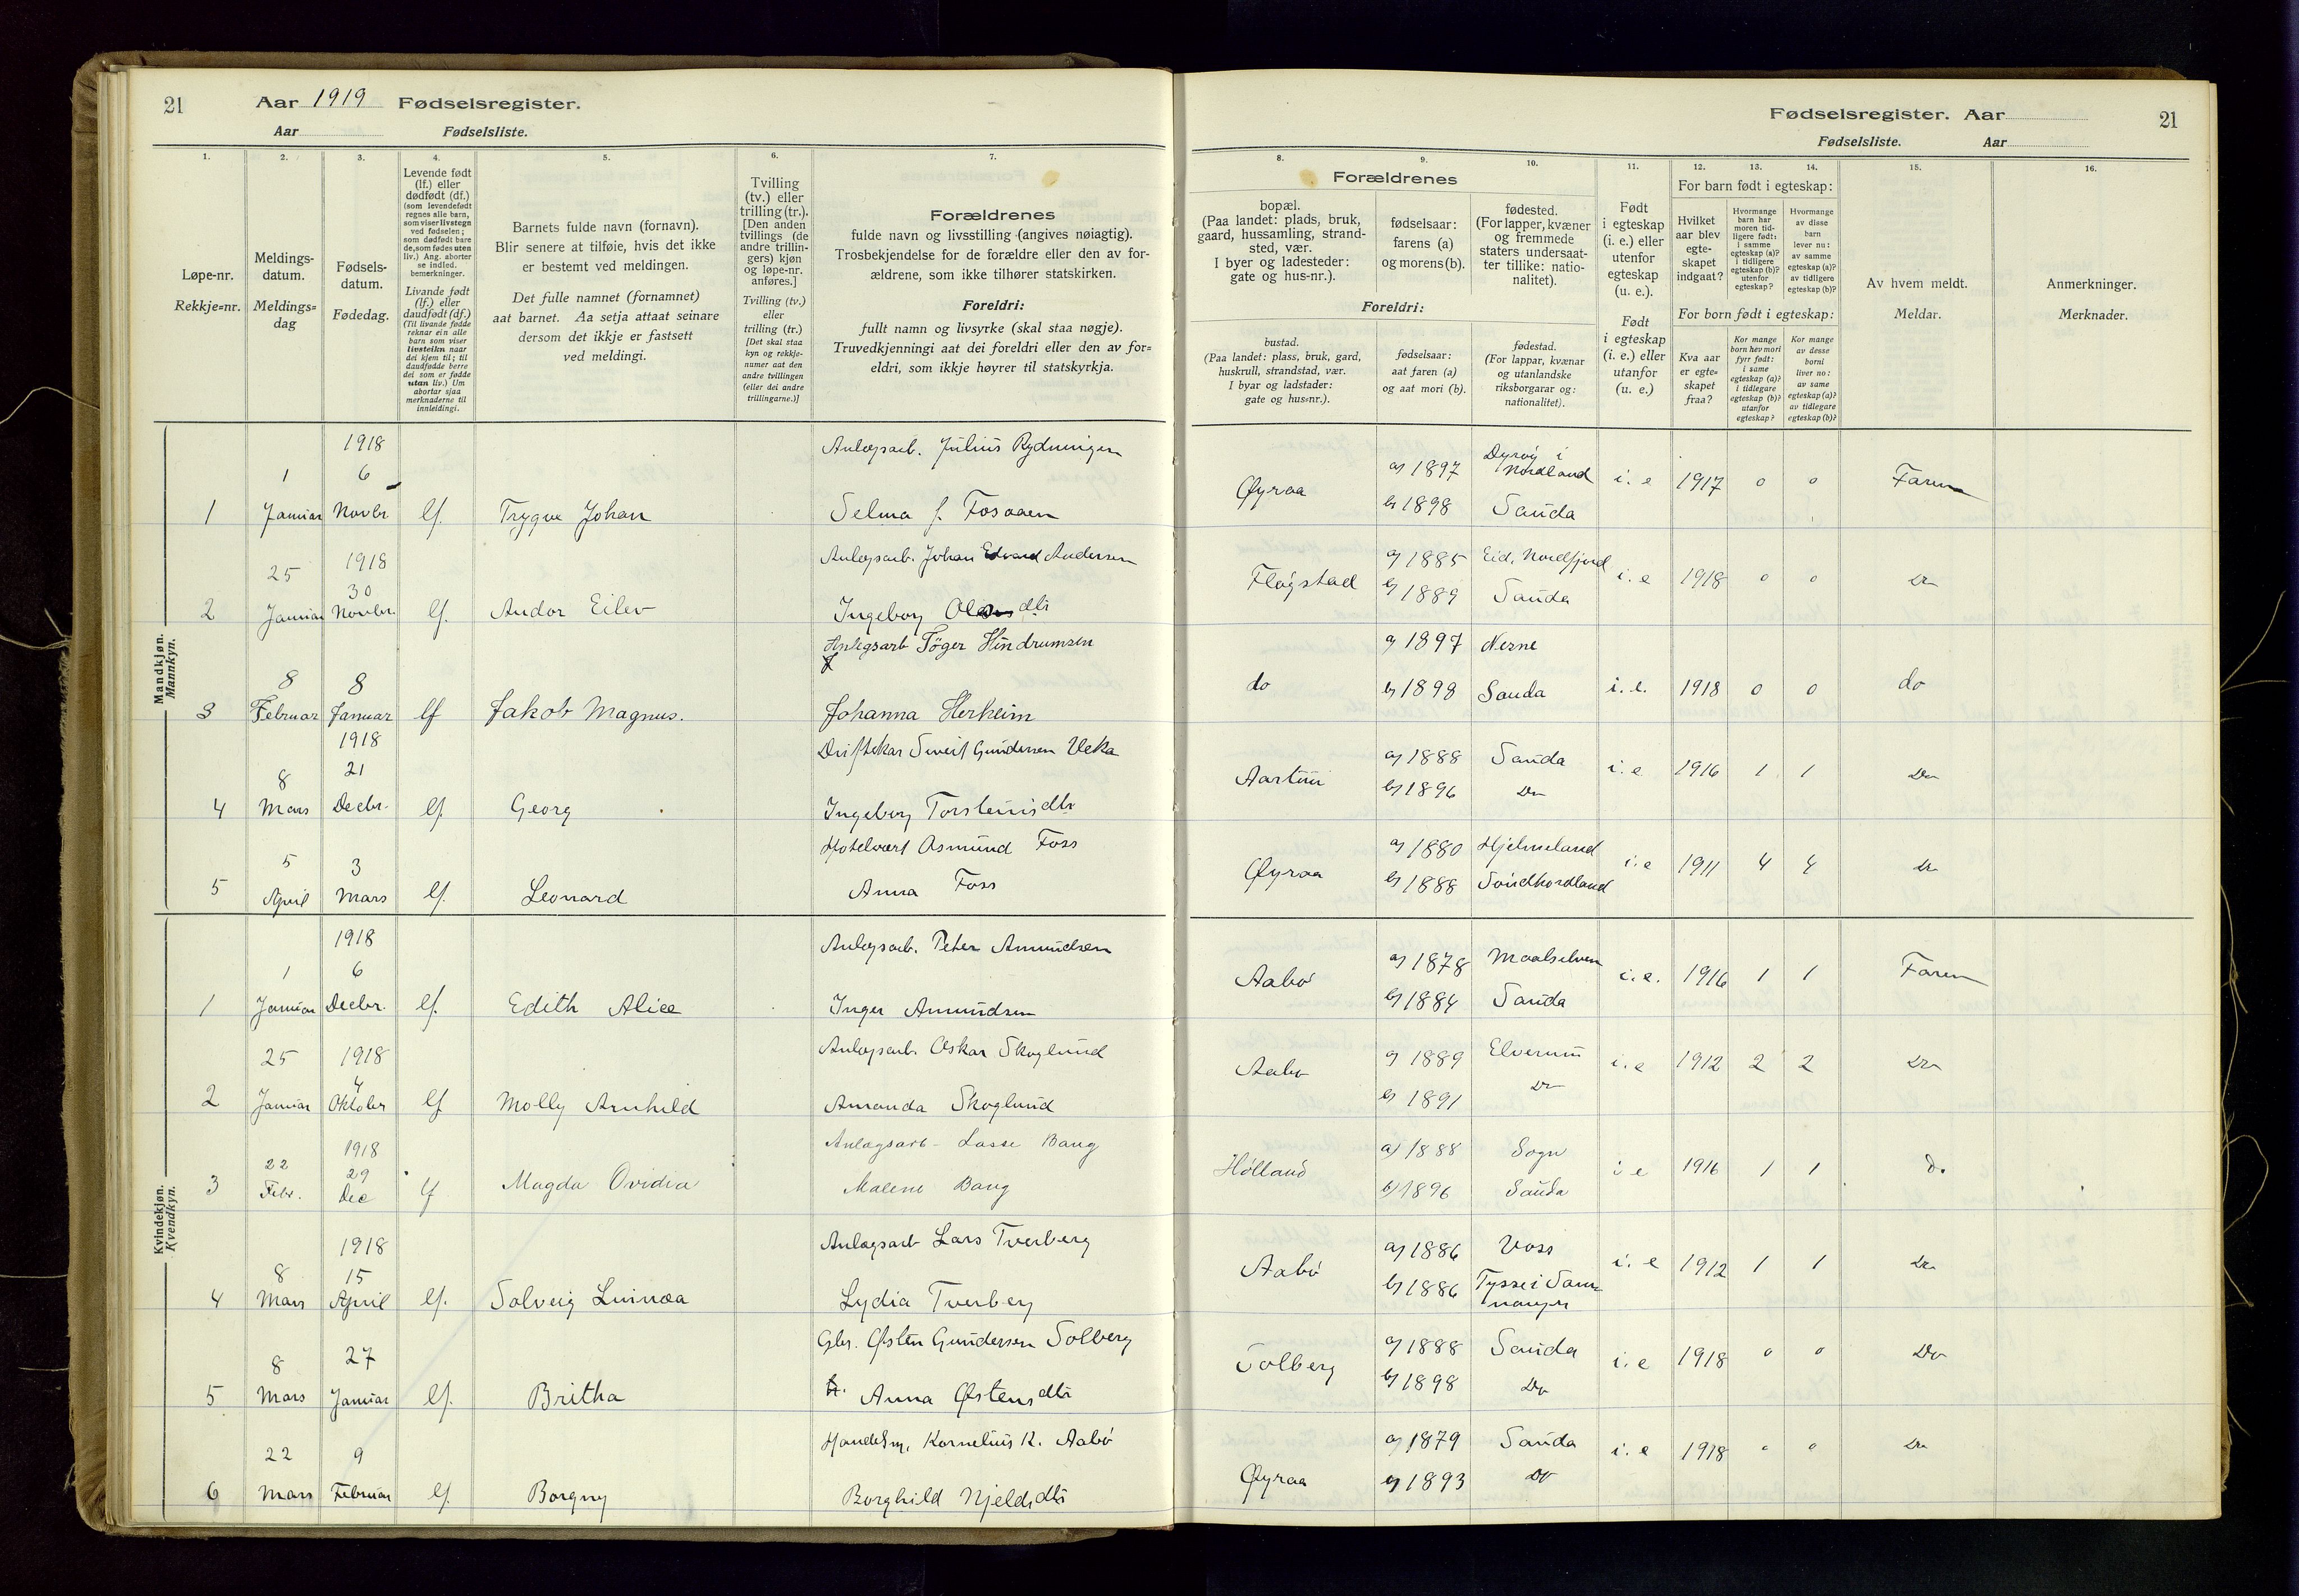 21
Aar 1919 Fødselsregister.
Aar Fødselsliste.
1.
2.
3.
4.
5.
6.
7.
Løpe-nr.
Rekkje=nr.
Meldings-
datum.
Meldings=
dag
Fødsels-
datum.
Fødedag.
Levende født
(lf.) eller
dødfødt (df.)
(som levendefødt
regnes alle barn,
som viser livstegn
ved fødselen;
som dødfødt bare
de, som fødes uten
liv.) Ang. aborter
se indled.
bemerkninger.
Livande født
(lf.) eller
daudfødt (df.)
(Til livande fødde
reknar ein alle
barn som viser
livsteikn naar
dei kjem til; til
daudfødde berre
dei som er fødde
utan liv.) Um
abortar sjaa
merknaderne til
innleidingi.
Barnets fulde navn (fornavn).
Blir senere at tilføie, hvis det ikke
er bestemt ved meldingen.
Det fulle namnet (fornamnet)
aat barnet. Aa setja attaat seinare
dersom det ikkje er fastsett
ved meldingi.
Tvilling
(tv.) eller
trilling (tr.).
[Den anden
tvillings (de
andre trillin-
gers) kjøn
og løpe-nr.
anføres.]
Tvilling (tv.)
eller
trilling (tr.)
[Det skal staa
kyn og rekkje-
numer aat den
andre tvillingen
(eller dei andre
trillingarne.)]
Forældrenes
fulde navn og livsstilling (angives nøiagtig).
Trosbekjendelse for de forældre eller den av for-
ældrene, som ikke tilhører statskirken.
Foreldri:
fullt namn og livsyrke (skal staa nøgje).
Truvedkjenningi aat dei foreldri eller den av for=
eldri, som ikkje høyrer til statskyrkja.
Mandkjøn.
Mannkyn.
1918
1 6
1 Januar Novbr lf. Trygve Johan
Anlægsarb. Julius Rydningen
Selma f. Fosaaen
1918
25 30
2 Januar Novbr. lf. Andor Eilev
Anlægsarb. Johan Edvard Andersen
Ingeborg dtr
8 8
3 Februar Januar lf Jakob Magnus.
Anlegsarb Töger Hindrumsen
Johanna Herheim
1918
8 21
4 Mars Decbr. lf. Georg
Driftskar Sveis Gundersen Veka
Ingeborg Torsteinsdtr
5 3
5 April Mars lf. Leonard
Hotelvært Asmund Foss
Anna Foss
Kvindekjøn.
Kvendkyn.
1918
1 6
1 Januar Decbr. lf. Edith Alice
Anlægsarb. Peter Amundsen
Inger Amundsen
25 1918
4
2 Januar Oktober lf Molly Arnhild
Anlægsarb. Oskar Skoglund
Amanda Skoglund
1918
22 29
3 Febr. Dec lf Magda Ovidia
Anlægsarb. Lasse Bang
Malene Bang
1918
8 15
4 Mars April lf. Solveig
Anlægsarb Lars Tverberg
Lydia Tverberg
8 27
5 Mars Januar lf. Britha
Gbr. Østen Gundersen Solberg
Anna Østensdtr
22 9
6 Mars Februar lf. Borgny
Handelsm. Kornelius K. Aabø
Borghild Kjeldsdtr
Fødselsregister. Aar
Fødselsliste. Aar
21
8.
9.
10.
11.
12.
13.
14.
15.
16.
Forældrenes
bopæl.
(Paa landet: plads, bruk,
gaard, hussamling, strand-
sted, vær.
I byer og ladesteder:
gate og hus-nr.).
fødselsaar:
farens (a)
og morens (b).
fødested.
(For lapper, kvæner
og fremmede
staters undersaat-
ter tillike: natio-
nalitet).
Foreldri:
bustad.
(Paa landet: plass, bruk, gard,
huskrull, strandstad, vær.
I byar og ladstader:
gate og hus=nr.).
fødselsaar:
aat faren (a)
og aat mori (b).
fødestad.
(For lappar, kvænar
og utanlandske
riksborgarar og:
nationalitet).
Født
i egteskap
(i. e.) eller
utenfor
egteskap
(u. e.).
Født
i egteskap
(i. e.) eller
utanfor
egteskap
(u. e.)
For barn født i egteskap:
Hvilket
aar blev
egte-
skapet
indgaat?
Hvormange
barn har
moren tid-
ligere født:
i samme
egteskap (a)?
i tidligere
egteskap (b)?
utenfor
egteskap?
Hvormange
av disse
barn
lever nu:
av samme
egteskap (a)?
av tidligere
egteskap (b)?
For born født i egteskap:
Kva aar
er egte=
skapet
fraa?
Kor mange
born hev mori
fyrr født:
i same
egteskap (a)?
i tidlegare
egteskap (b)?
utanfor
egteskap?
Kor mange
av desse
borni
liver no:
av same
egteskap (a)?
av tidlegare
egteskap (b)?
Av hvem meldt.
Meldar.
Anmerkninger.
Merknader.
Øyraa a) 1897 Dyrøy i Nordland i. e 1917 0 0 Faren
b) 1898 Sauda
Fløgstad a) 1885 Eid, Nordfjord i. e 1918 0 0 Do
b) 1889 Sauda
do a) 1897 Nesne i. e. 1918 0 0 do
b) 1898 Sauda
Aartun a) 1888 Sauda i. e 1916 1 1 Do
b) 1896 Do
Øyraa a) 1880 Hjelmeland i. e 1911 4 4 Do
b) 1888 Søndhordland
Aabø a) 1878 Maalselven i. e. 1916 1 1 Faren
b) 1884 Sauda
Aabø a) 1889 Elverum i. e 1912 2 2 Do
b) 1891 Do
Hølland a) 1888 Sogn i e 1916 1 1 Do
b) 1896 Sauda
Aabø a) 1886 Voss i. e 1912 1 1 Do
b) 1886 Tysse i Sam-
nanger
Solberg a) 1888 Sauda i. e 1918 0 0 Do
b) 1898 Do
Øyraa a) 1879 Sauda i. e 1918 0 0 Do
b) 1893 Do